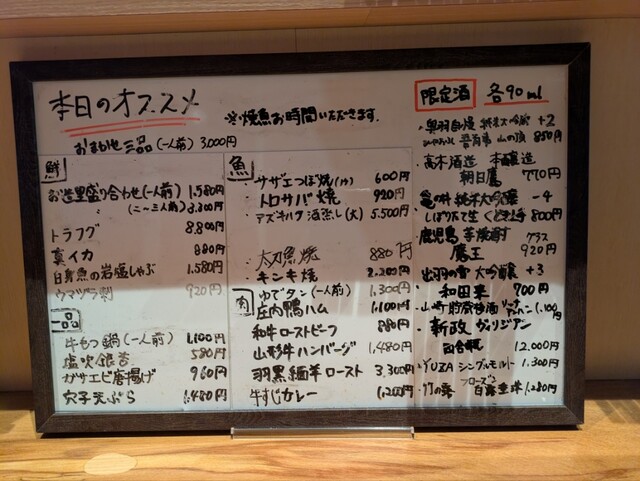 本日のオススメ
※焼魚お時間いただきます。
おまかせ三品(一人前) 3,000円
鮮
お造里盛り合わせ(一人前) 1,580円
(二〜三人前) 3,300円
トラフグ 8,800円
真イカ 880円
白身魚の岩塩しゃぶ 1,580円
ウマヅラ刺 920円
一品
牛もつ鍋(一人前) 1,100円
塩吹銀杏 580円
ガサエビ唐揚げ 960円
穴子天ぷら 1,480円
魚
サザエつぼ焼(1ヶ) 600円
トロサバ焼 920円
アズキハタ酒蒸し(大) 5,500円
太刀魚焼 880円
キンキ焼 2,200円
肉
ゆでタン(一人前) 1,300円
庄内鴨ハム 1,100円
和牛ローストビーフ 880円
山形牛ハンバーグ 1,480円
羽黒緬羊ロースト 3,300円
牛すじカレー 1,200円
限定酒 各90ml
・奥羽自慢 純米大吟醸 +2
山の頂 850円
・高木酒造 本醸造
朝日鷹 770円
・亀の井 純米大吟醸 -4
しぼりたて生 くどき上手 800円
・鹿児島 芋焼酎 グラス
魔王 920円
・出羽の雪 大吟醸 +3
和田来 700円
・山崎 貯蔵梅酒 1,100円
・新政 ヴィリジアン
四合瓶 12,000円
・YUZA シングルモルト 1,300円
・竹の露 白露垂珠 1,280円